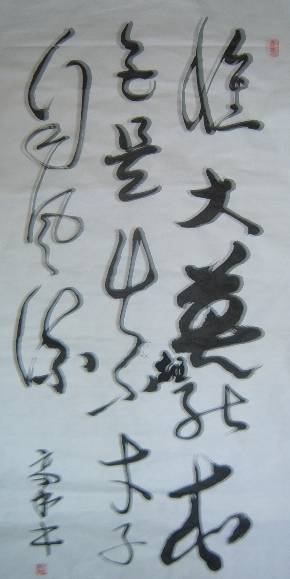 惟大英雄能本
色是真才子
自风流